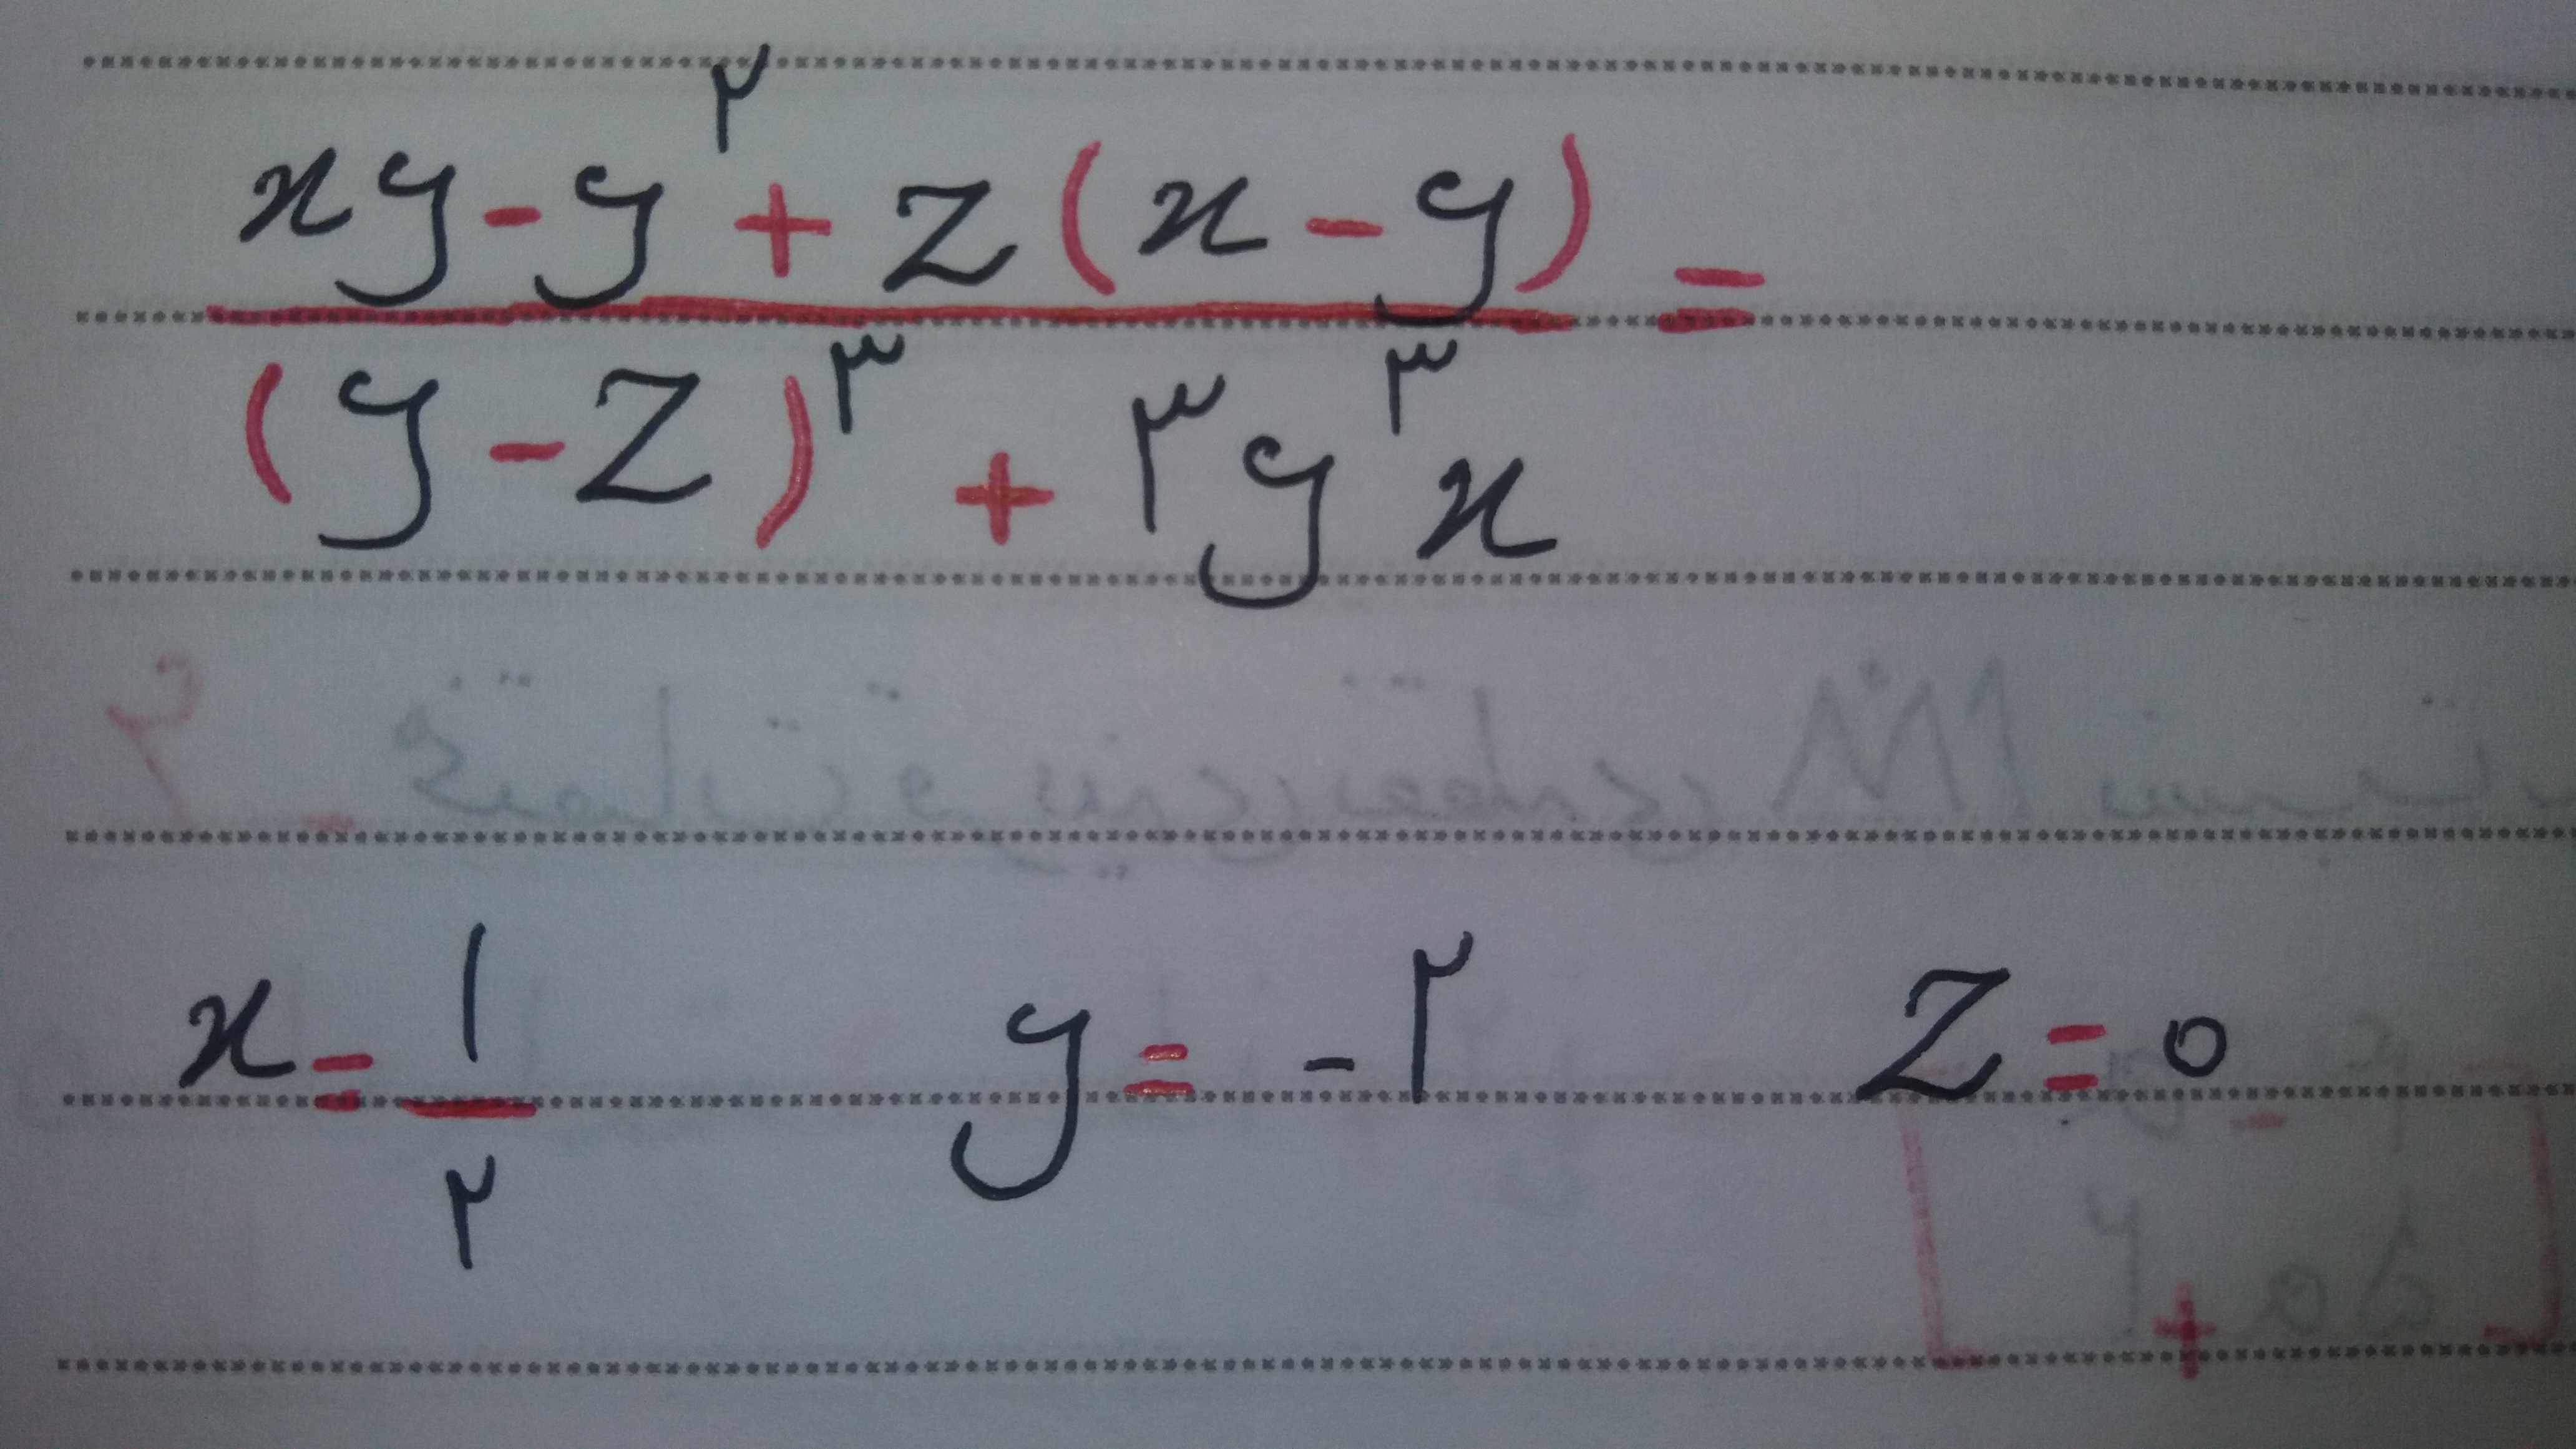 xy - y^۲ + z(x - y) =
(y - z)^۳ + ۳y^۳x
x = ۱/۲ y = -۲ z = ۰